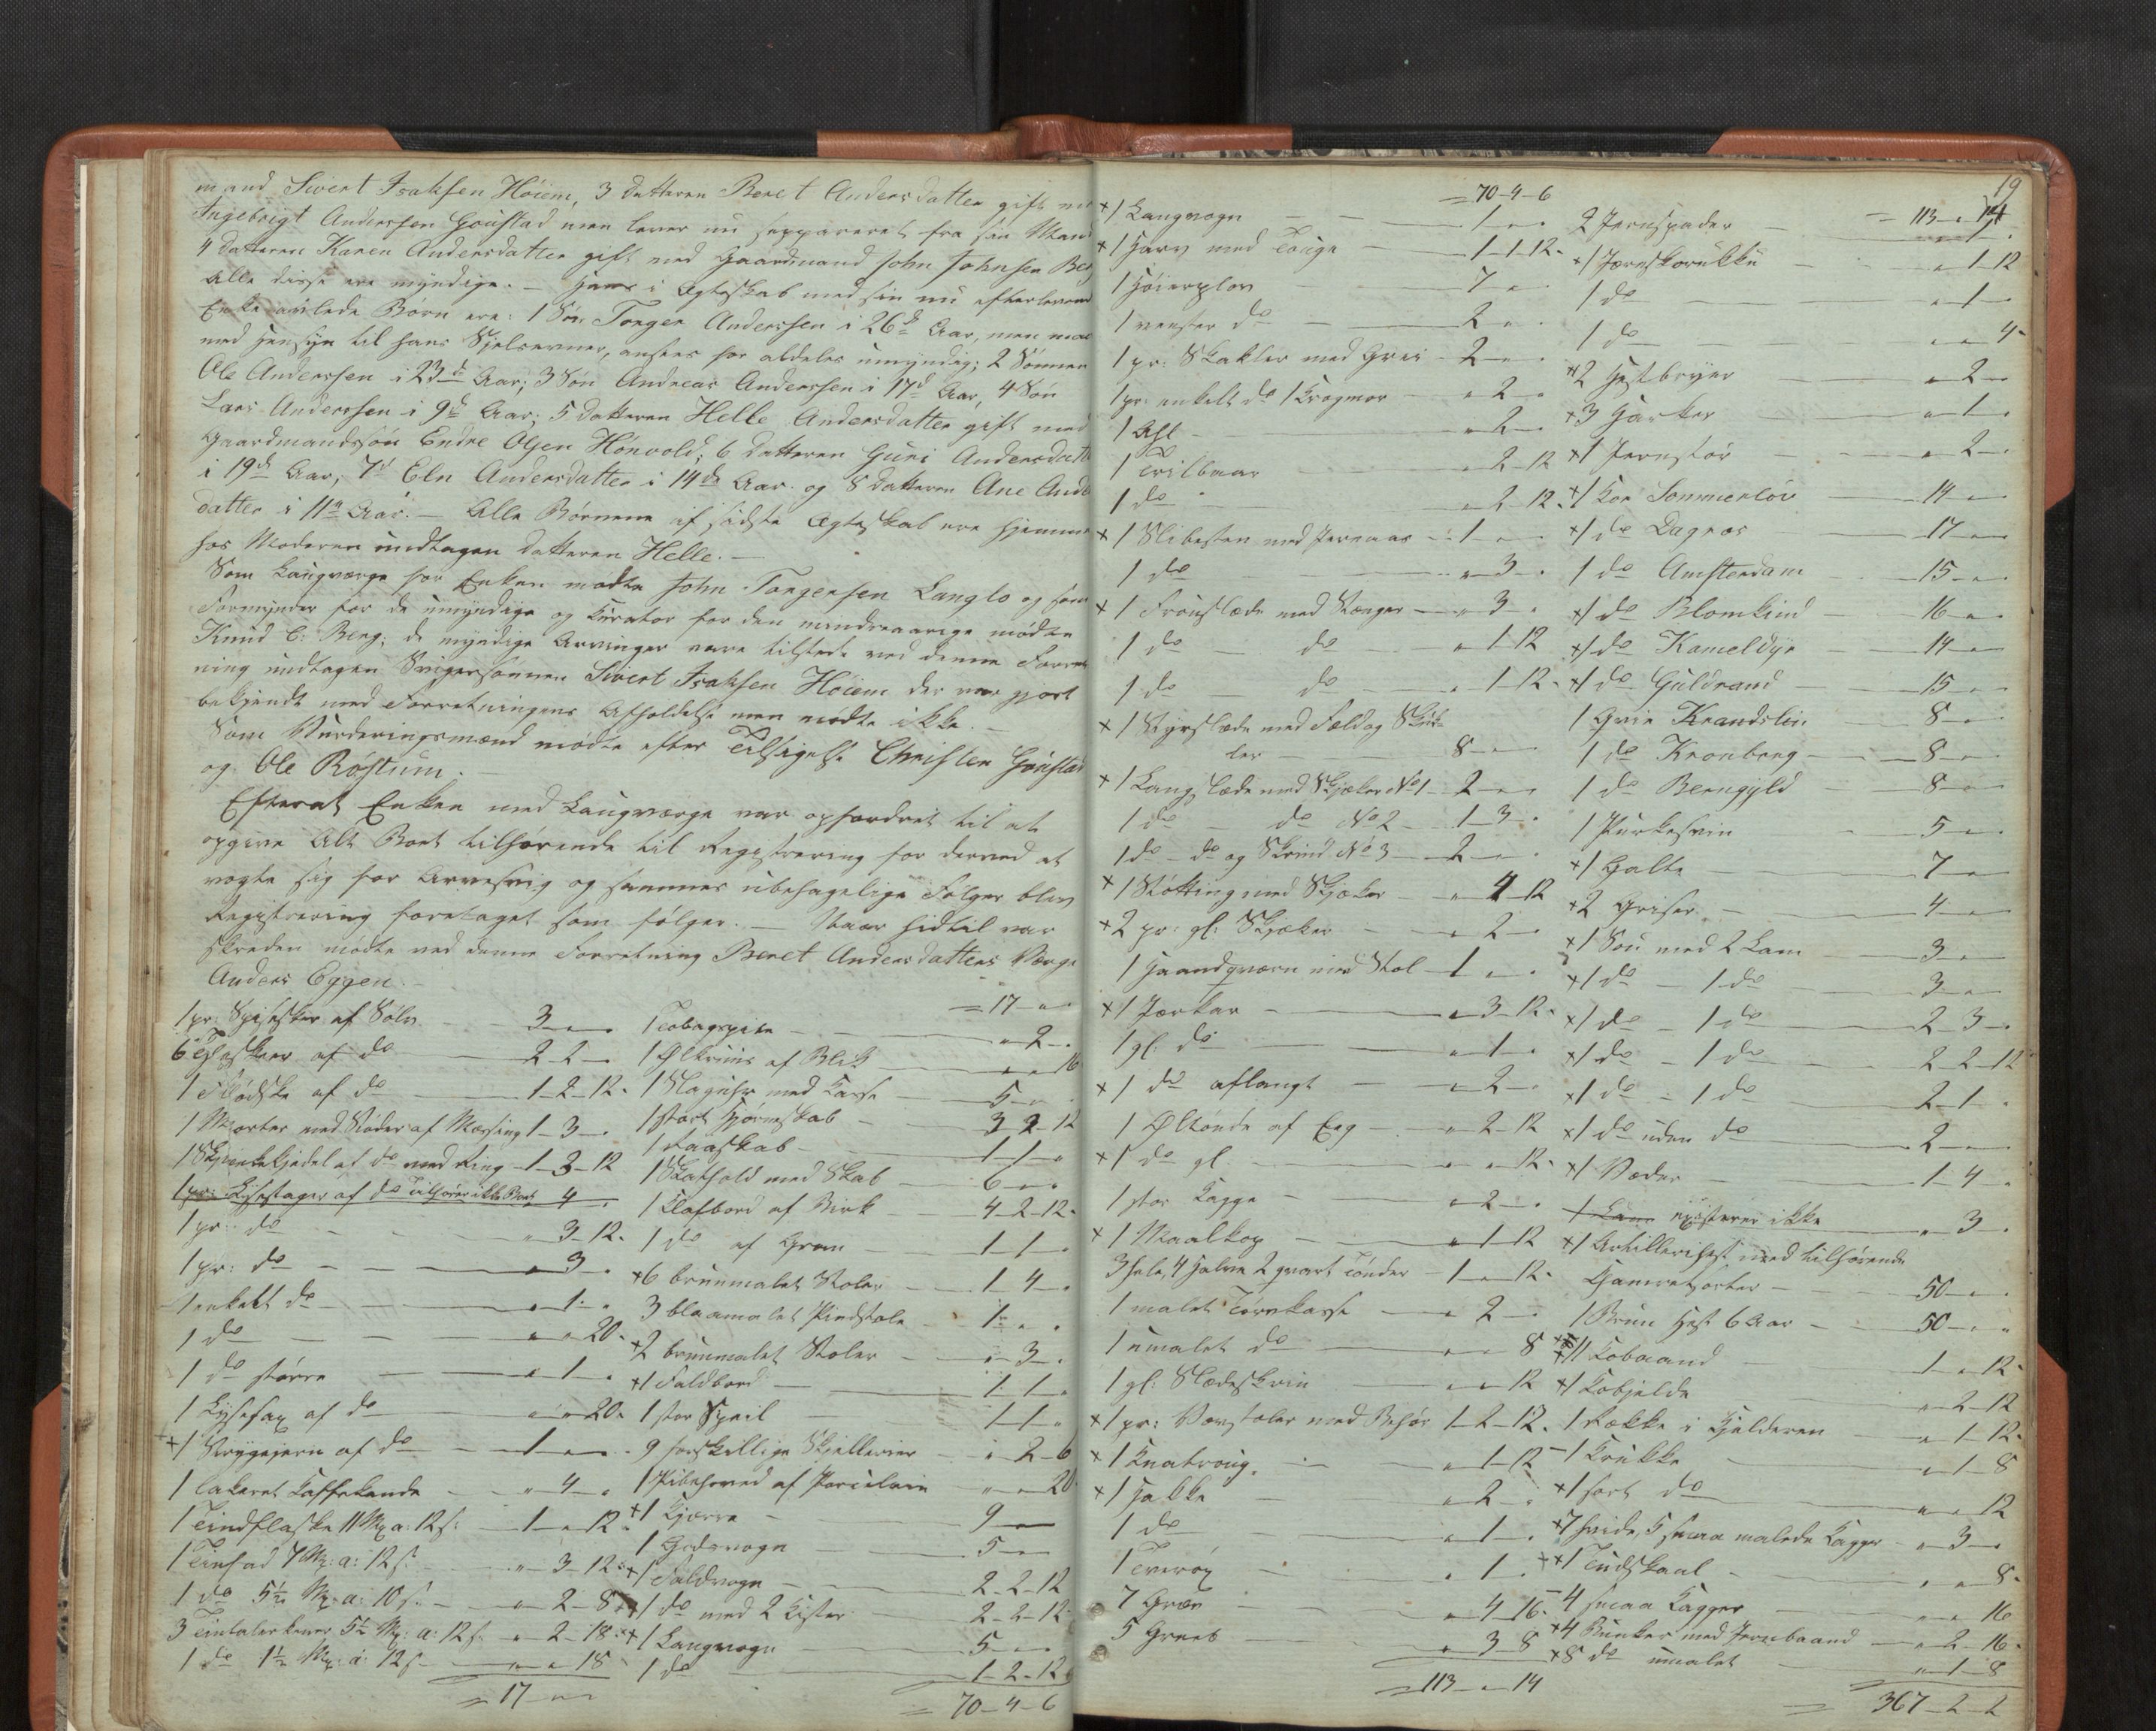 mand Sivert Isaksen Höiem, 3 datteren Beret Andersdatter gift med
Ingebrigt Anderssen Goustad men lever nu seppareret fra sin Mand
4 datteren Karen Andersdatter gift med Gaardmand John Johnsen Berg
Alle disse ere myndige. – Hans i Ægteskab med sin nu efterlevende
Enke avlede Børn ere: 1 Søn Torger Anderssen i 26de Aar, men maa
med Hensyn til hans Sjelsevner, ansees for aldeles umyndig; 2 Sønnen
Ole Anderssen i 23de Aar; 3 Søn Andreas Anderssen i 17de Aar, 4 Søn
Lars Anderssen i 9de Aar; 5 datteren Helle Andersdatter gift med
Gaardmandssøn Endre Olsen Hönvold; 6 datteren Guri Andersdatter
i 19de Aar, 7de Eln Andersdatter i 14de Aar og 8 datteren Ane Anders
datter i 11te Aar. – Alle Børnene af sidste Ægteskab ere hjemme
hos Moderen undtagen datteren Helle. –
Som Laugværge for Enken mødte John Torgersen Langlo og som
Formynder for de umyndige og Kurator for den mindreaarige mødte
Knud C: Berg; de myndige Arvinger vare tilstede ved denne Forret
ning undtagen Svigersønnen Sivert Isaksen Höiem der var gjort
bekjendt med Forretningens Afholdelse men mødte ikke. –
Som Vurderingsmænd mødte efter Tilsigelse Christen Goustad
og Ole Röstum. –
Efterat Enken med Laugværge var opfordret til at
opgive Alt Boet tilhørende til Registrering for derved at
vogte sig for Arvesvig og sammes ubehagelige Følger blev
Registrering foretaget som følger. – Naar hidtil var
skreden mødte ved denne Forretning Beret Andersdatters Værge
Anders Eggen. –
1 pr: Spiseskeer af Sölv 3 – „ – „
6 Theskeer af do 2 – 2 – „
1 Flödske af do 1 – 2 – 12
1 Morter med Stöder af Messing 1 – 3 – „
1 kjedel af do med Ring 1 – 3 – 12
1 pr: Lysestager af do tilhører ikke Boet 4 –
1 pr: do „ – 3 – 12
1 pr: do „ – 3 – „
1 enkelt do „ – 1 – „
1 do „ – „ – 20
1 do större „ – 1 – „
1 Lysesax af do „ – „ – 20
+ 1 Strygejern af do 1 – „ – „
1 lakeret Kaffekande „ – 4 – „
1 Tindflaske 11 Mk a: 12 s: 1 – „ – 12
1 Tinfad 7 Mk: a: 12 s: „ – 3 – 12
1 do 5½ Mk: a: 10 s: „ – 2 – 8
3 Tintalerkener 5½ Mk: a: 12 s: „ – 2 – 18
1 do 1½ Mk: a: 12 s: „ – „ – 18
= 17 – „ – „
= 17 – „ – „
1 Tobagspibe „ – 2 – „
1 Ölkruus af Blik „ – „ – 16
1 Slaguhr med Kasse 5 – „ – „
1 stort Hjörneskab 3 – 2 – 12
1 skab 1 – 1 – „
1 Skathold med Skab 6 – „ – „
1 Klafbord af Birk 4 – 2 – 12
1 do af Gran 1 – 1 – „
+ 6 brunmalet Stoler 1 – 4 – „
3 blaamalet Pindstole 1 – „ – „
+ 2 brunmalet Stoler „ – 3 – „
+ 1 Faldbord 1 – 1 – „
1 stor Speil 1 – 1 – „
9 forskillige Skjellerier „ – 2 – 6
1 Pibehoved af Porcelain „ – „ – 20
+ 1 Kjærre 9 – „
1 Gedsvogn 5 – „
+ 1 Faldvogn 2 – 2 – 12
+ 1 do med 2 Kister 2 – 2 – 12
+ 1 Langvogn 5 – „
1 do 1 – 2 – 12
= 70 – 4 – 6
= 70 – 4 – 6
+ 1 Langvogn 1 – „ – „
+ 1 Harv med Touge 1 – 1 – 12
1 Höierplov 7 – „
1 venster do 2 – „
1 pr: Skakler med Greie 2 – „
1 pr: enkelt do „ – 2 – „
1 „ – 2 – „
1 Trilbaar „ – 2 – 12
1 do „ – 2 – 12
+ 1 Slibesten med Jernaas 1 – „ – „
1 do „ – 3 – „
+ 1 slæde med Stænger „ – 3 – „
1 do – do „ – 1 – 12
1 do – do „ – 1 – 12
+ 1 slæde med Fæld og Skak
ler 8 – „
+ 1 Langslæde med Skjæker No 1 2 – „
1 do – do No 2 1 – 3 – „
1 do – do og Skrind No 3 2 – „
+ 1 Stötting med Skjæker „ – 4 – 12
+ 2 pr: gl: Skjæker „ – 2 – „
1 Haandqværn med Stol 1 – „
+ 1 Jærkar „ – 3 – 12
1 gl: do „ – 1 – „
+ 1 do aflangt „ – 2 – „
1 Öltönde af Eeg „ – 2 – 12
+ 1 do gl: „ – „ – 12
1 stor Kagge „ – 2 – „
+ 1 Maalkop „ – 1 – 12
3 hele, 4 halve 2 qvart Tönder 1 – „ – 12
1 malet Kornkasse „ – 2 – „
1 umalet do „ – „ – 8
1 gl: Slædeskrin „ – „ – 12
+ 1 pr: Vævstoler med Behör 1 – 2 – 12
+ 1 Knatroug „ – 1 – 12
+ 1 Hakke „ – 2 – „
1 do „ – 1 – „
1 Tveröx „ – 1 – „
7 Græv „ – 4 – 16
5 Greeb „ – 3 – 8
= 113 – „ – 14
19
= 113 – „ – 14
2 Jernspader „ – 1 – „
+ 1 Jernskorukke „ – 1 – 12
1 do „ – 1 – „
1 do „ – „ – 4
+ 2 Höstbryer „ – 2 – „
+ 3 Harker „ – 1 – „
+ 1 Jernstör „ – 2 – „
+ 1 Koe Sommerlöv 14 – „
+ 1 do Dagros 17 – „
1 do Amsterdam 15 – „
+ 1 do Blomkind 16 – „
+ 1 do Kameldyr 14 – „
+ 1 do Guldrand 15 – „
1 Qvie Krandslin 8 – „
1 do Kronborg 8 – „
1 do Berngyld 8 – „
1 Purkesvin 5 – „
+ 1 Galte 7 – „
+ 2 Griser 4 – „
+ 1 Sou med 2 Lam 3 – „
+ 1 do – 1 do 3 – „
+ 1 do – 1 do 2 – 3 – „
+ 1 do – 1 do 2 – 2 – 12
+ 1 do – 1 do 2 – 1 – „
+ 1 do uden do 2 – „
+ 1 Væder 1 – 4 – „
1 Lam existerer ikke „ – 3 – „
+ 1 Artillerihest med tilhørende
50 – „
1 Brun Hest 6 Aar 50 – „ – „
+ 11 Kobaand 1 – „ – 12
+ 1 Kobjelde „ – 2 – 12
1 Række i Kjelderen „ – 1 – 12
– 1 Krukke „ – 1 – 8
+ 1 sort do „ – „ – 12
+ 7 hvide, 5 smaa malede Kagger „ – 3 – „
+ 1 Tudskaal „ – „ – 8
– 4 smaa Kagger „ – „ – 16
+ 4 Bunker med Jernbaand „ – 2 – 16
+ 8 do umalet „ – 1 – 8
= 367 – 2 – 2